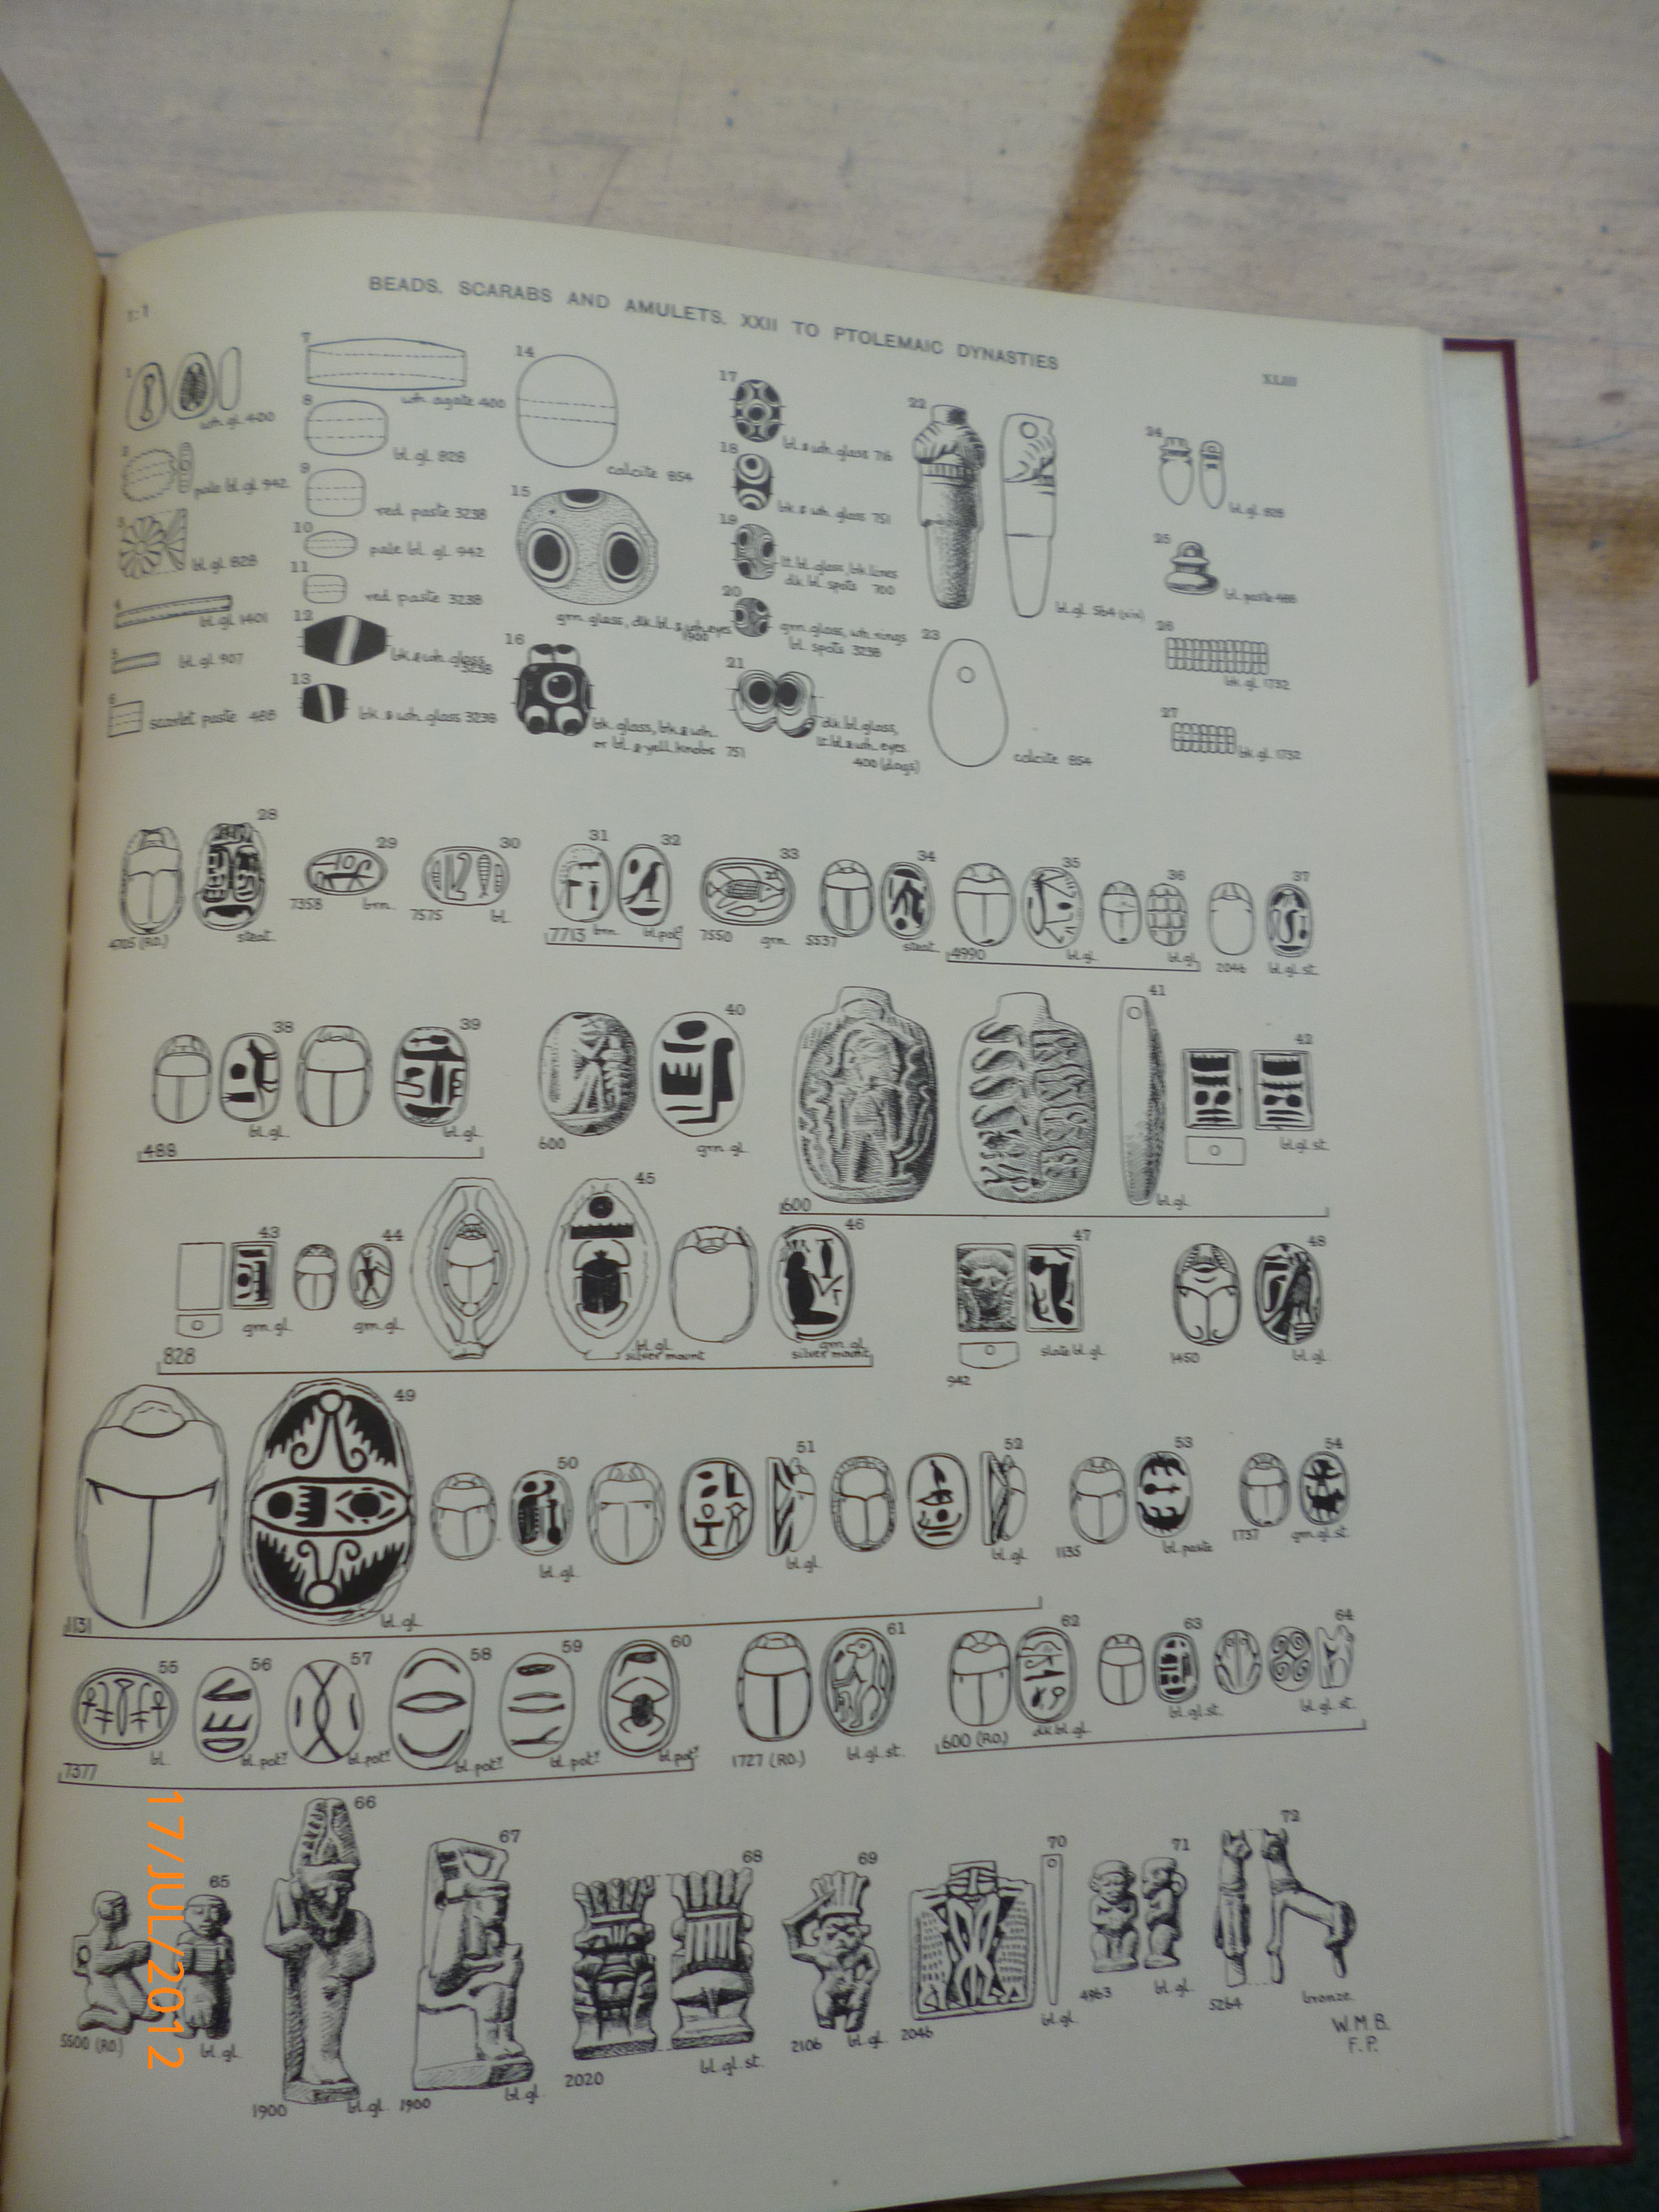 BEADS. SCARABS AND AMULETS. XXII TO PTOLEMAIC DYNASTIES
1:1
XLIII
1
wh. gl. 400
2
pale bl. gl. 942
3
bl. gl. 828
4
bl. gl. 1401
5
bl. gl. 907
6
scarlet paste 488
7
wh. agate 400
8
bl. gl. 828
9
red paste 3238
10
pale bl. gl. 942
11
red paste 3238
12
bk. & wh. glass
3238
13
bk. & wh. glass 3238
14
calcite 854
15
grn. glass, dk. bl. & wh. eyes
1900
16
bk. glass, bk. & wh.
or bl. & yell. knobs 751
17
bl. & wh. glass 716
18
bk. & wh. glass 751
19
lt. bl. glass, bk. lines
dk. bl. spots 700
20
grn. glass, wh. rings
bl. spots 3238
21
dk. bl. glass,
lt. bl. & wh. eyes
400 (dogs)
22
bl. gl. 564 (xix)
23
calcite 854
24
bl. gl. 828
25
bl. paste 488
26
bk. gl. 1732
27
bk. gl. 1732
28
4705 (RD.) steat.
29
7358 brn.
30
7575 bl.
31 32
7713 brn. bl. pot?
33
7550 grn.
34
5537 steat.
35 36
4990 bl. gl. bl. gl.
37
2046 bl. gl. st.
38 39
488 bl. gl. bl. gl.
40
600 grn. gl.
41 42
600 bl. gl. bl. gl. st.
43 44 45 46
828 grn. gl. grn. gl. bl. gl. silver mount grn. gl. silver mount
47
942 slate bl. gl.
48
1450 bl. gl.
49 50 51 52
1131 bl. gl. bl. gl. bl. gl. bl. gl.
53
1135 bl. paste
54
1737 grn. gl. st.
55 56 57 58 59 60
7377 bl. bl. pot? bl. pot? bl. pot? bl. pot? bl. pot?
61
1727 (RD.) bl. gl. st.
62 63 64
600 (RD.) dk. bl. gl. bl. gl. st. bl. gl. st.
65
5500 (RD.) bl. gl.
66
1900 bl. gl.
67
1900 bl. gl.
68
2020 bl. gl. st.
69
2106 bl. gl.
70
2046 bl. gl.
71
4963 bl. gl.
72
5264 bronze.
W.M.B.
F.P.
17/JUL/2012